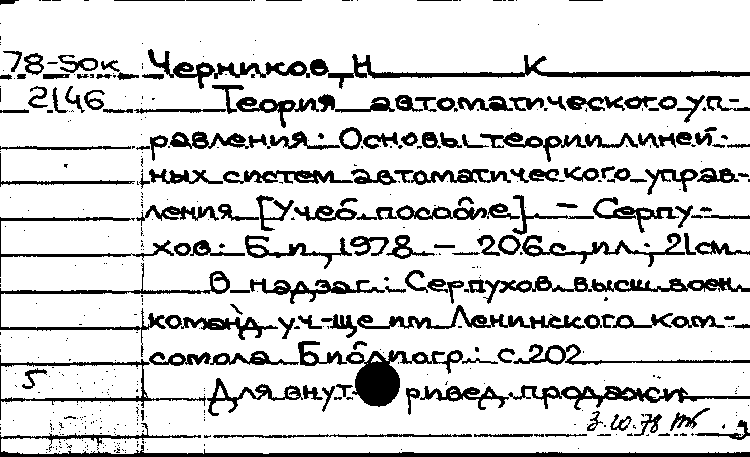 78-50к Черников, Н К
2146 Теория автоматического уп-
равления: Основы теории линей-
ных систем автоматического управ-
ления [Учеб. пособие]. – Серпу-
хов: Б. и., 1978 – 206 с., ил.; 21 см
В надзаг.: Серпухов. высш. воен.
команд. уч-ще им. Ленинского ком-
сомола. Библиогр.: с. 202
5 Для внут ривед. продажи.
3.10.78